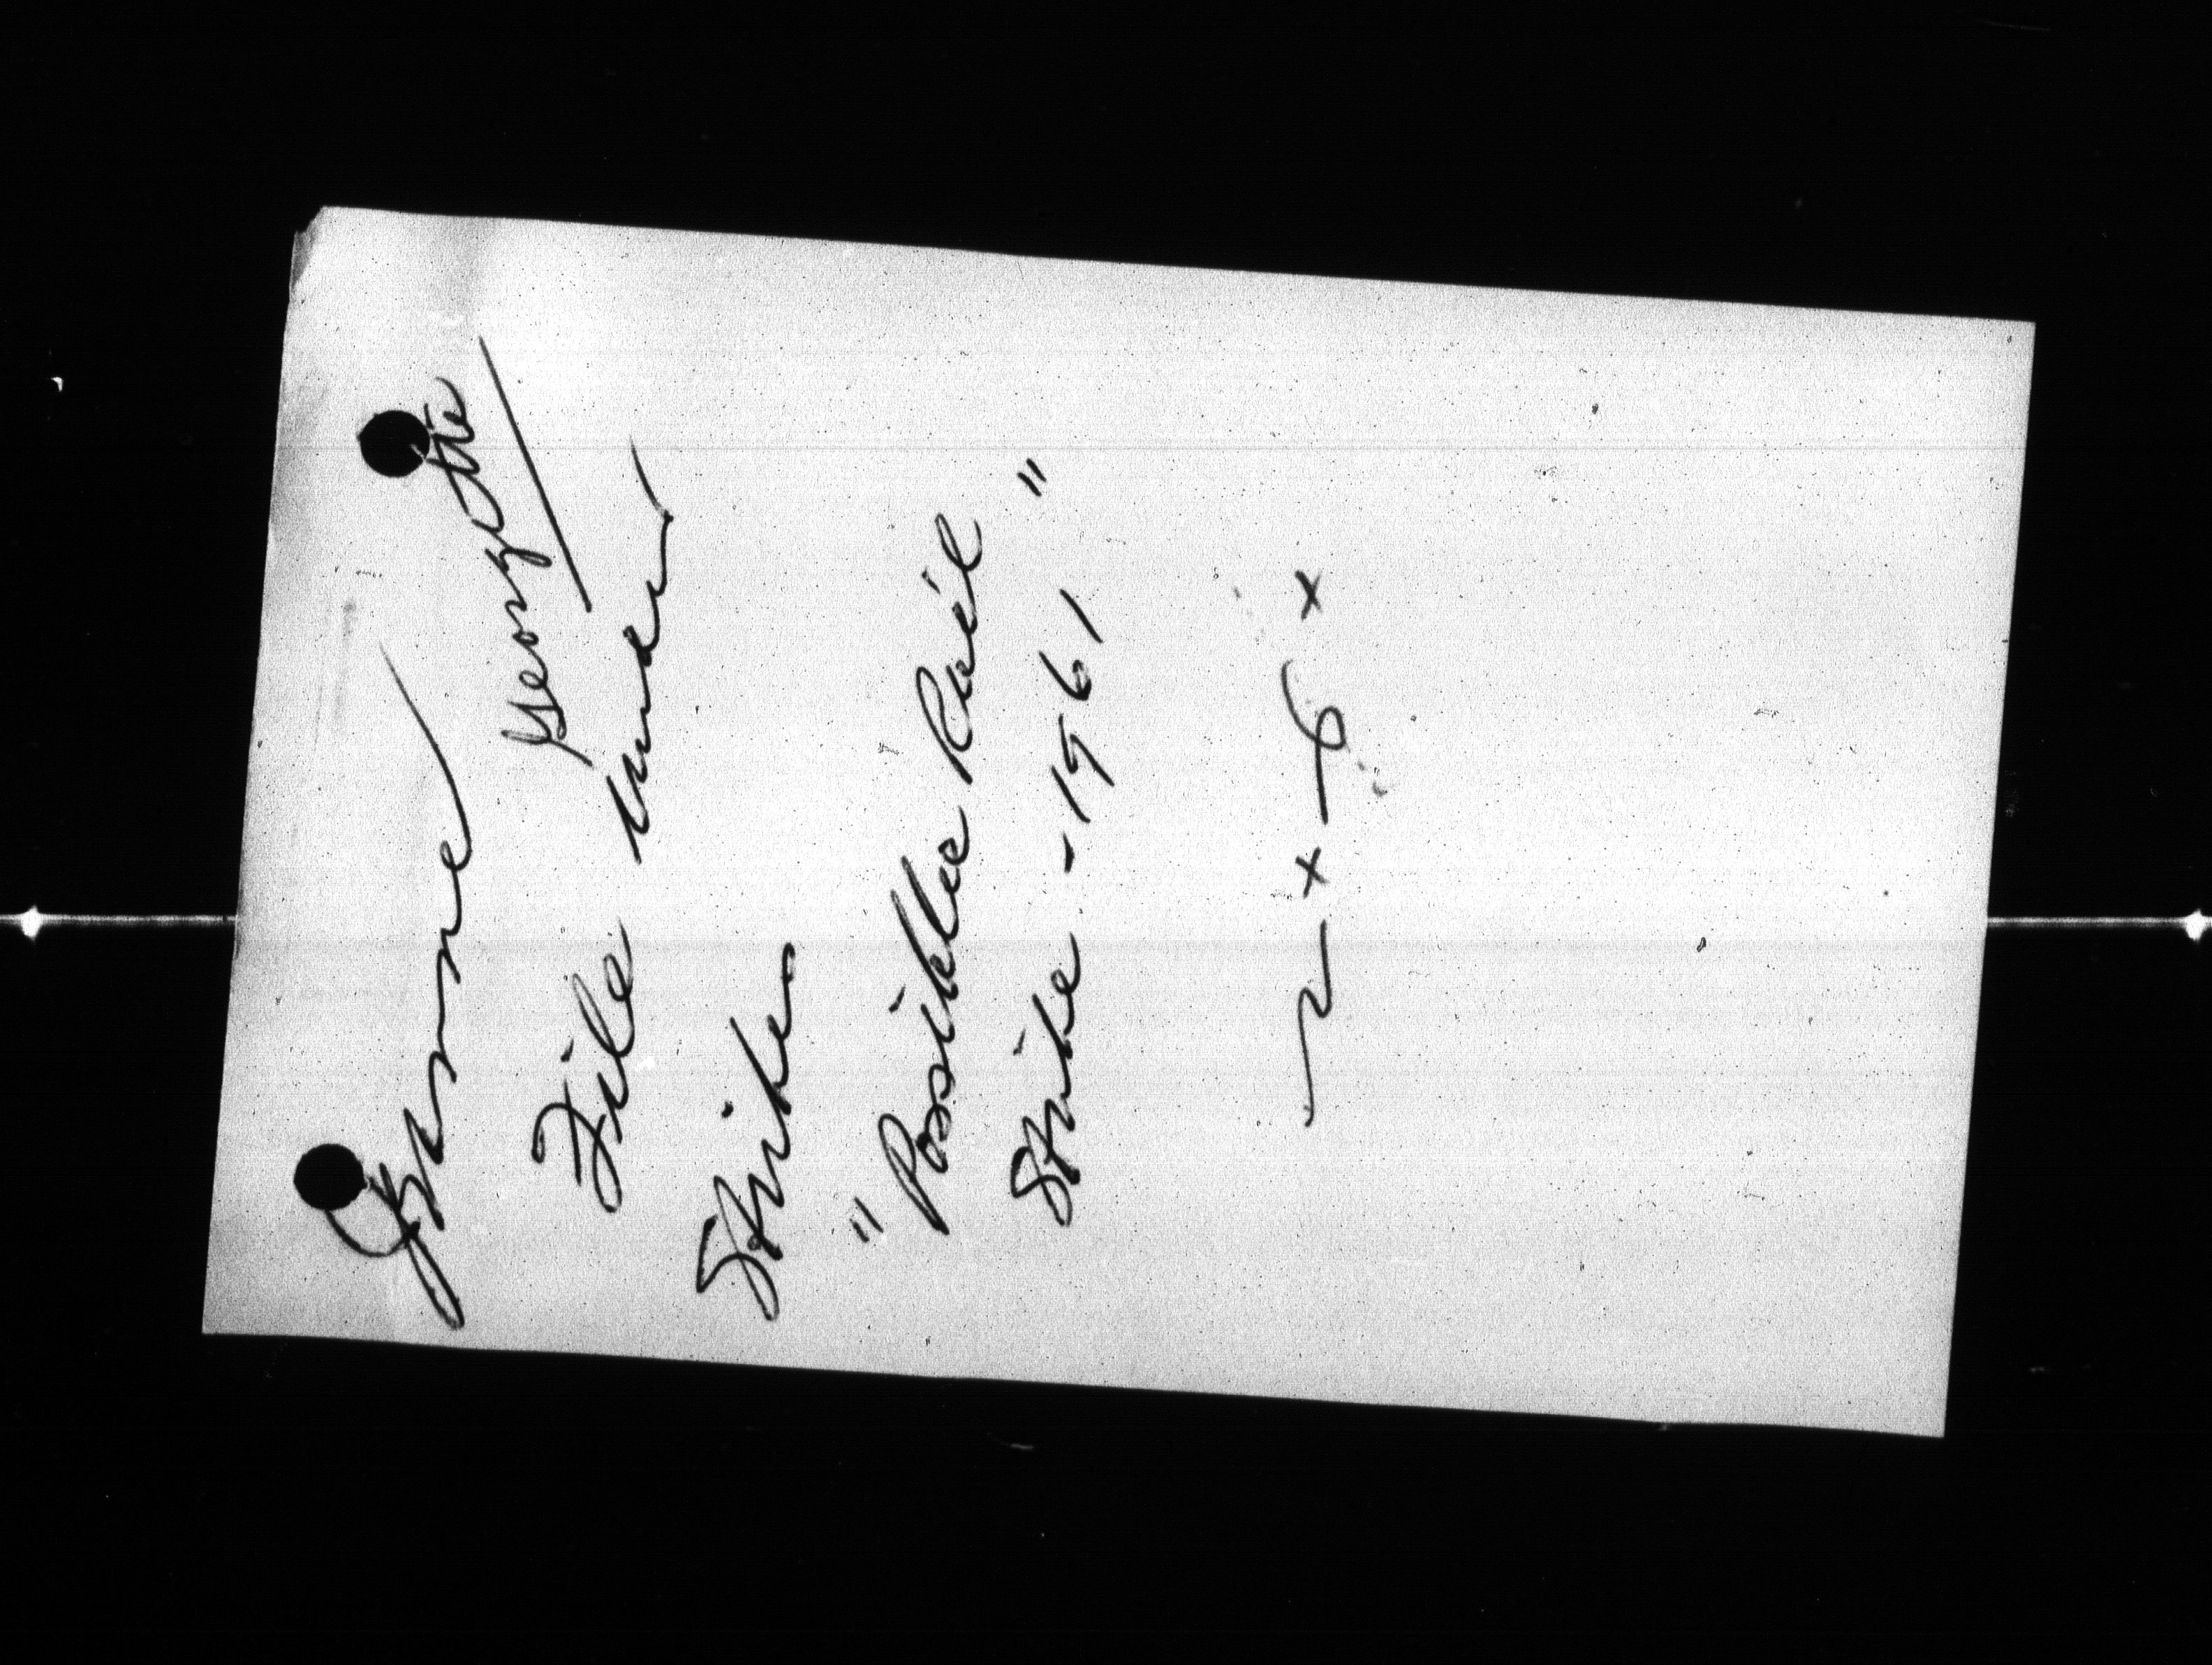 Georgette
File under
Strike
"Possible Rail
Strike - 1961"